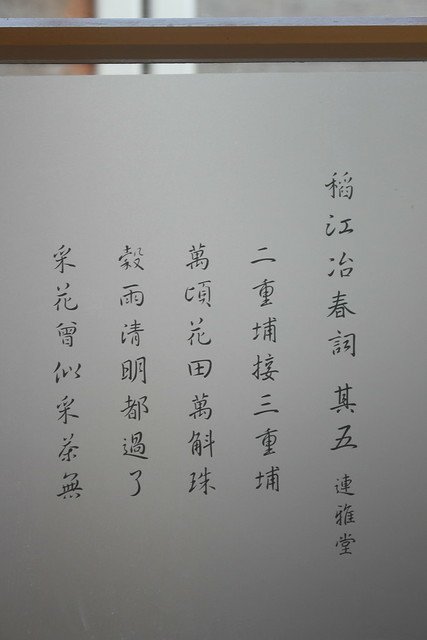 稻江冶春詞 其五 連雅堂
二重埔接三重埔
萬頃花田萬斛珠
穀雨清明都過了
采花曾似采茶無